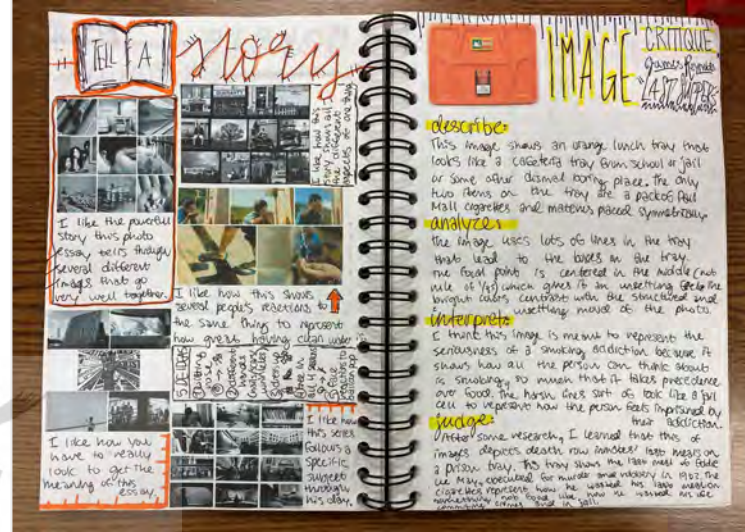 TELL A
story
I like the powerful
story this photo
essay tells through
several different
images that go
very well together.
I like how this
story shows all
the different
aspects of one thing
I like how this shows
several people's reactions to
the same thing to represent
how great having clean water is
5 IDEAS
I like how you
have to really
look to get the
meaning of this
essay.
I like how
this series
follows a
specific
subject
through
his day.
IMAGE
CRITIQUE
James Reynolds
"LAST SUPPERS"
describe:
This image shows an orange lunch tray that
looks like a cafeteria tray from school or jail
or some other dismal boring place. The only
two items on the tray are a pack of Pall
Mall cigarettes and matches placed symmetrically.
analyze:
the image uses lots of lines in the tray
that lead to the boxes on the tray.
The focal point is centered in the middle (not
rule of 1/3s) which gives it an unsettling feel. The
bright colors contrast with the structured and
unsettling mood of the photo.
interpret:
I think this image is meant to represent the
seriousness of a smoking addiction because it
shows how all the person can think about
is smoking, so much that it takes precedence
over food. The harsh lines sort of look like a jail
cell to represent how the person feels imprisoned by
their addiction.
judge:
After some research, I learned that this
images depicts death row inmates' last meals on
a prison tray. This tray shows the last meal of Eddie
Lee Mays, executed for murder and robbery in 1963. The
cigarettes represent how he wanted his last meal
something not food like how he
committing crimes and in jail.